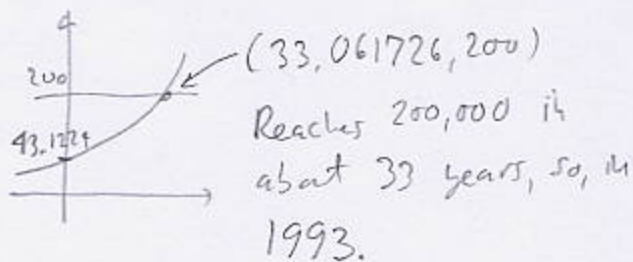 200
43.1224
(33.061726, 200)
Reaches 200,000 in
about 33 years, so, in
1993.